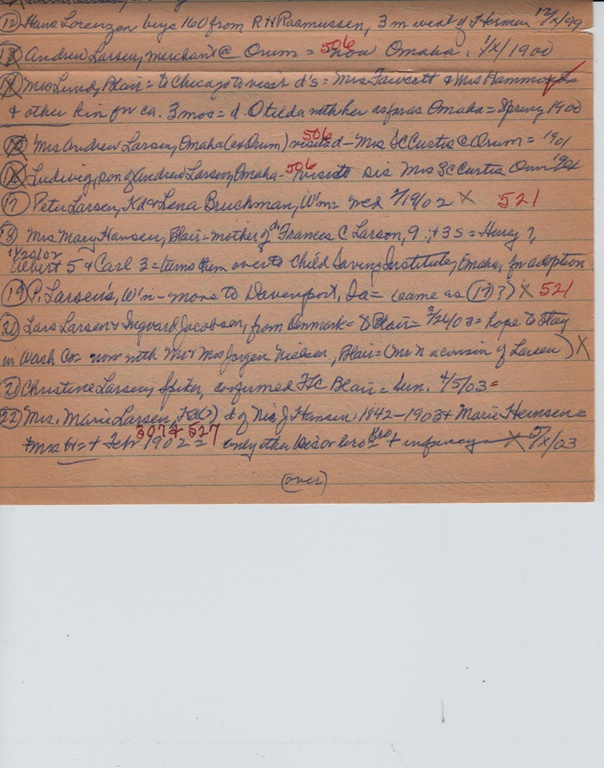 (12) Hans Lorenzen buys 160 from R H Rasmussen, 3 m west of Herman 12/X/99
Andrew Larsen, merchant @ Orum = 506 now Omaha. 1/X/1900
Mrs Lund, Blair = to Chicago to visit d's = Mrs Fawcett & Mrs Hammond
& other kin for ca. 3 mos = d Otelda with her as far as Omaha = Spring 1900
Mrs Andrew Larsen, Omaha (ex Orum) visits 506 d - Mrs SC Curtis @ Orum = 1901
Ludwig, son of Andrew Larsen, Omaha - 506 visits sis Mrs SC Curtis Orum
(17) Peter Larsen, Kd & Lena Bruchman, W'm = wed 2/19/02 X 521
(18) Mrs Mary Hansen, Blair = mother of Frances C Larson, 9, & 3 s = Henry 7,
11/20/02 Albert 5 & Carl 3 = turns them over to Child Saving Institute, Omaha, for adoption
(19) P. Larsen's, W'n - move to Davenport, Ia = (same as (17)?) X 521
(20) Lars Larsen & Ingvard Jacobsen, from Denmark = to Blair = 3/26/03 = hope to stay
in Wash Co = now with Mr & Mrs Jorgen Nielsen, Blair = (Mr N a cousin of Larsen) X
(21) Christine Larsen, Spiker, confirmed FLC Blair = Sun. 4/5/03 =
(22) Mrs. Marie Larsen, Kd (?) d of Nis J. Hansen 1842-1903 & Marie Heinsen =
& Mrs H = + Feb 1902 = 507 & 527 only other sis or bro + infancy X 5/X/03
(over)